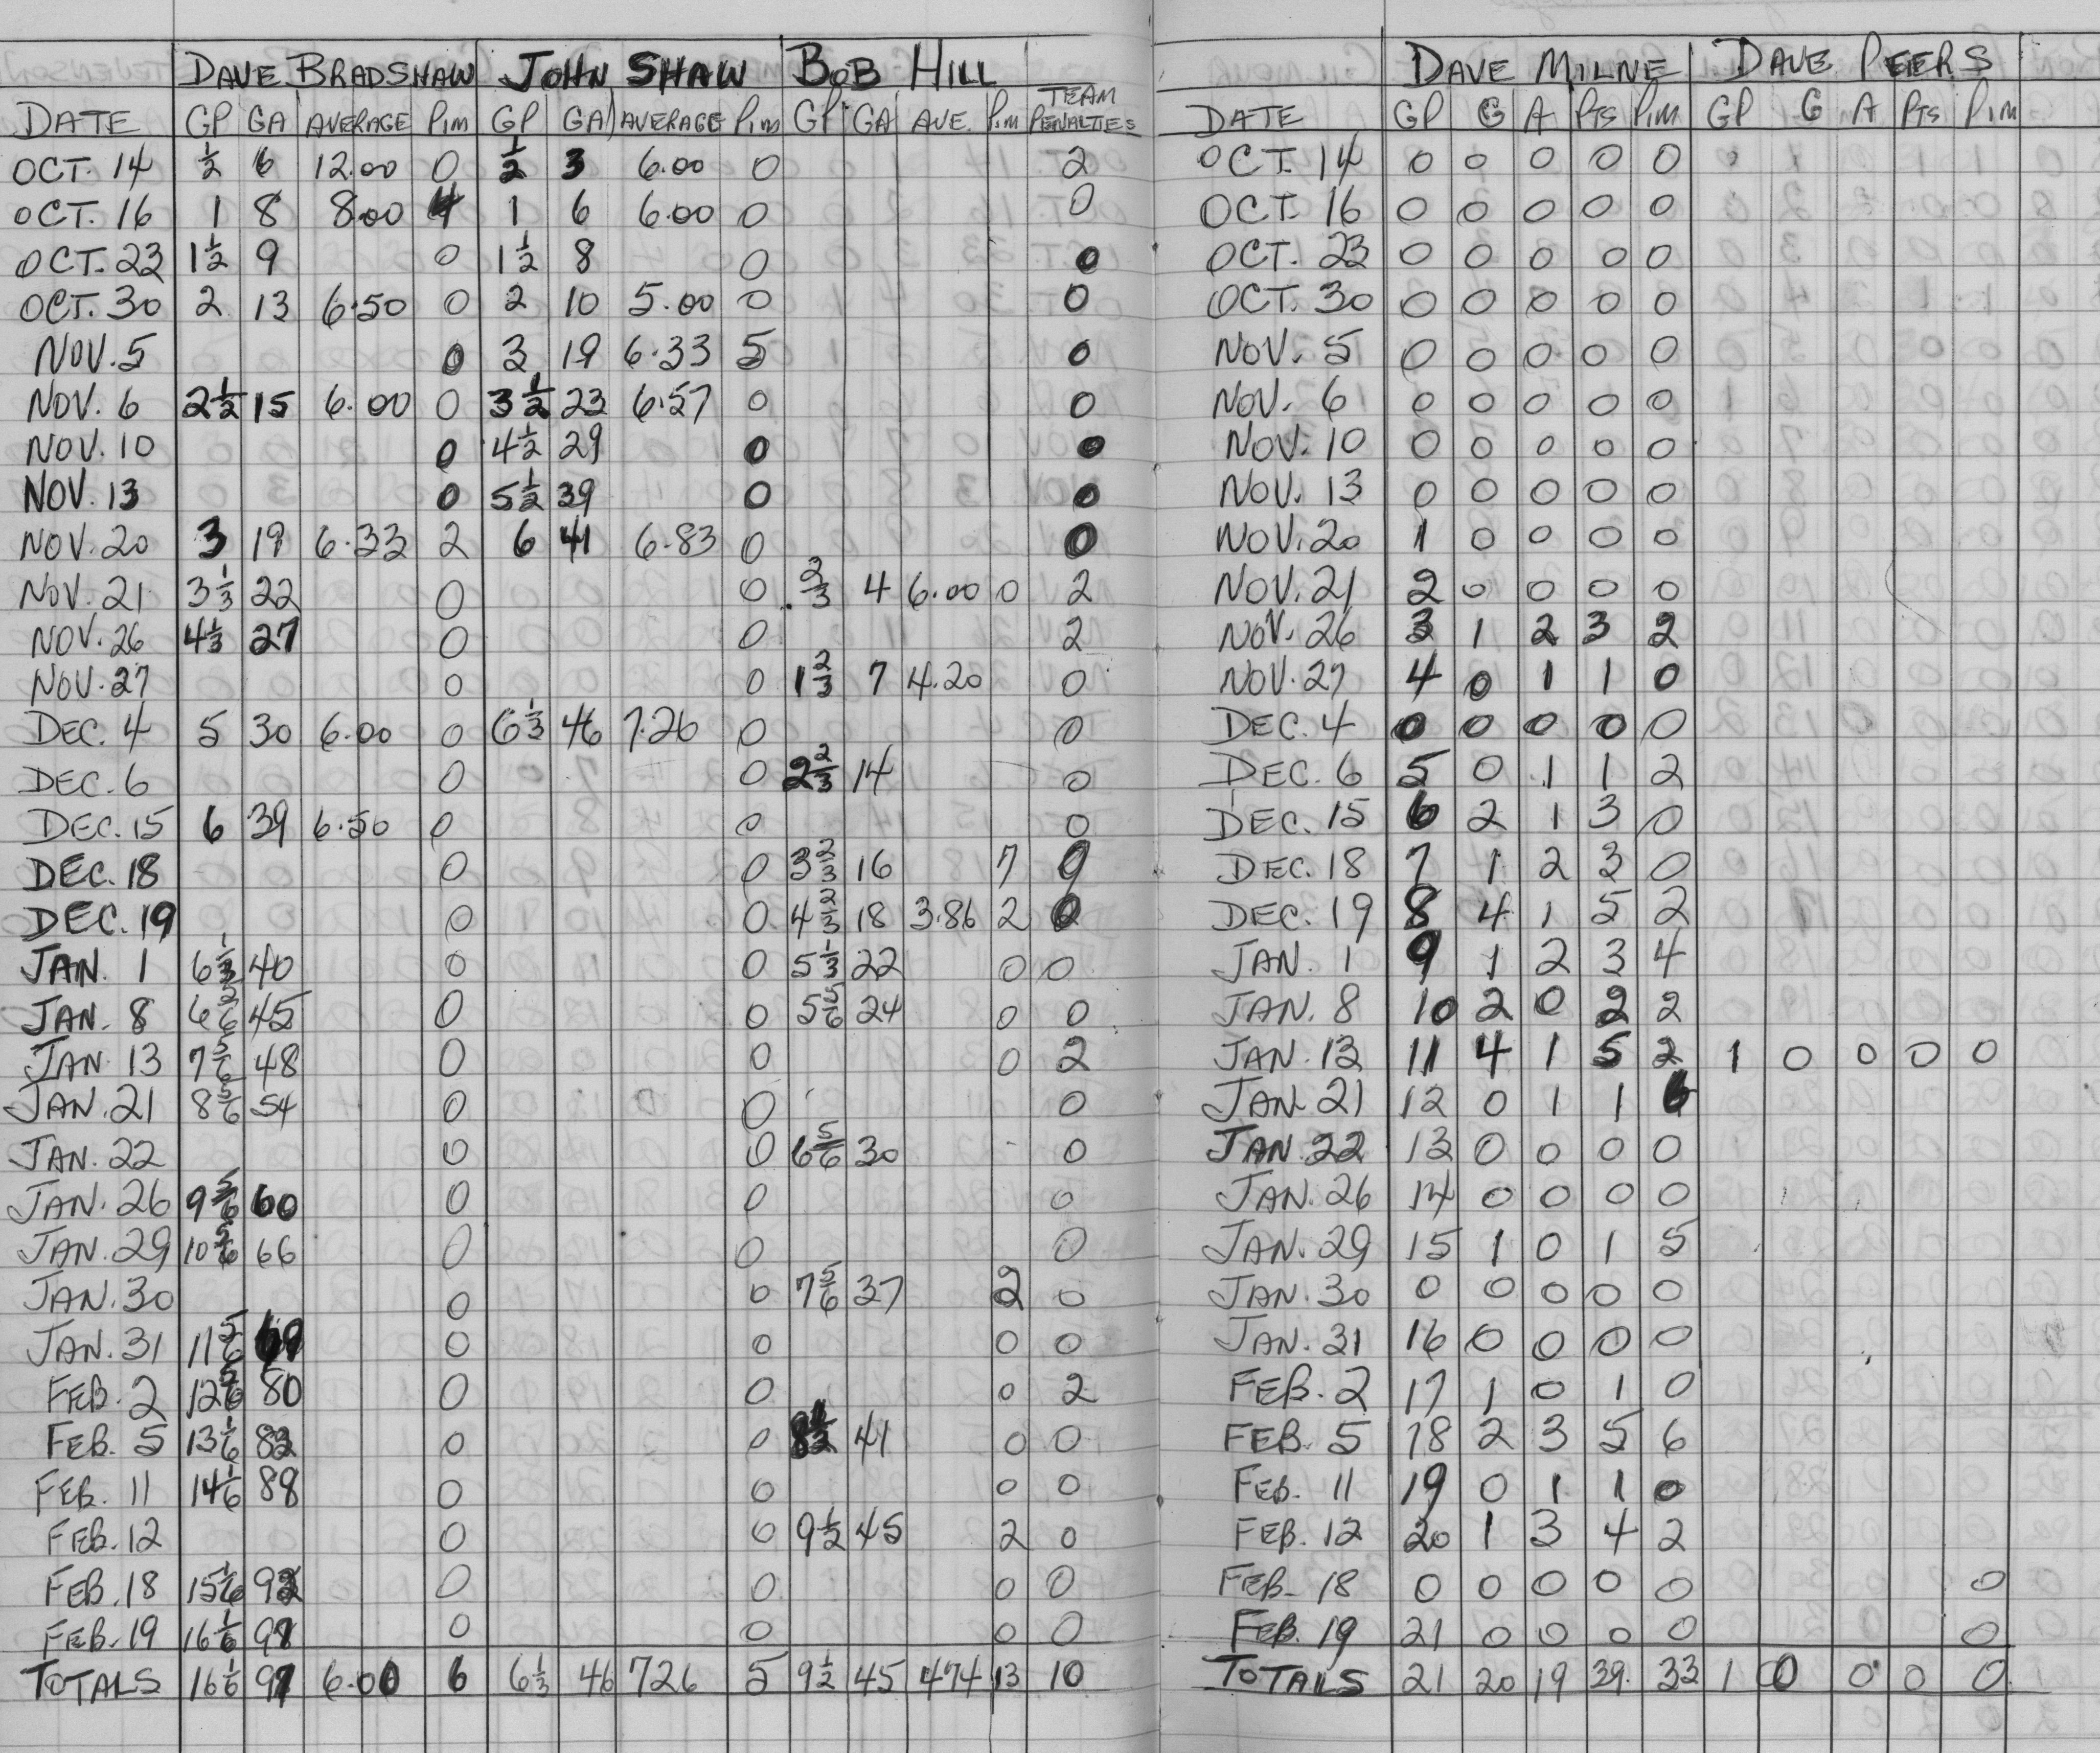 DAVE BRADSHAW JOHN SHAW BOB HILL
DATE GP GA AVERAGE PIM GP GA AVERAGE PIM GP GA AVE. PIM TEAM PENALTIES
OCT. 14 ½ 6 12.00 0 ½ 3 6.00 0 2
OCT. 16 1 8 8.00 4 1 6 6.00 0 0
OCT. 23 1½ 9 0 1½ 8 0 0
OCT. 30 2 13 6.50 0 2 10 5.00 0 0
NOV. 5 0 3 19 6.33 5 0
NOV. 6 2½ 15 6.00 0 3½ 23 6.57 0 0
NOV. 10 0 4½ 29 0 0
NOV. 13 0 5½ 39 0 0
NOV. 20 3 19 6.33 2 6 41 6.83 0 0
NOV. 21 3⅓ 22 0 0 ⅔ 4 6.00 0 2
NOV. 26 4⅓ 27 0 0 2
NOV. 27 0 0 1⅔ 7 4.20 0
DEC. 4 5 30 6.00 0 6⅓ 46 7.26 0 0
DEC. 6 0 0 2⅔ 14 0
DEC. 15 6 39 6.50 0 0 0
DEC. 18 0 0 3⅔ 16 7 0
DEC. 19 0 0 4⅔ 18 3.86 2 0
JAN. 1 6⅓ 40 0 0 5⅓ 22 0 0
JAN. 8 6 45 0 0 5⅚ 24 0 0
JAN. 13 7⅚ 48 0 0 0 2
JAN. 21 8⅚ 54 0 0 0
JAN. 22 0 0 6⅚ 30 0
JAN. 26 9⅚ 60 0 0 0
JAN. 29 10⅚ 66 0 0 0
JAN. 30 0 0 7⅚ 37 2 0
JAN. 31 11⅚ 69 0 0 0 0
FEB. 2 12⅚ 80 0 0 0 2
FEB. 5 13⅙ 83 0 0 8½ 41 0 0
FEB. 11 14⅙ 88 0 0 0 0
FEB. 12 0 0 9½ 45 2 0
FEB. 18 15⅙ 92 0 0 0 0
FEB. 19 16⅙ 97 0 0 0 0
TOTALS 16⅙ 97 6.00 6 6⅓ 46 726 5 9½ 45 474 13 10
DAVE MILNE DAVE PEERS
DATE GP G A PTS PIM GP G A PTS PIM
OCT. 14 0 0 0 0 0
OCT. 16 0 0 0 0 0
OCT. 23 0 0 0 0 0
OCT. 30 0 0 0 0 0
NOV. 5 0 0 0 0 0
NOV. 6 0 0 0 0 0
NOV. 10 0 0 0 0 0
NOV. 13 0 0 0 0 0
NOV. 20 1 0 0 0 0
NOV. 21 2 0 0 0 0
NOV. 26 3 1 2 3 2
NOV. 27 4 0 1 1 0
DEC. 4 0 0 0 0 0
DEC. 6 5 0 1 1 2
DEC. 15 6 2 1 3 0
DEC. 18 7 1 2 3 0
DEC. 19 8 4 1 5 2
JAN. 1 9 1 2 3 4
JAN. 8 10 2 0 2 2
JAN. 13 11 4 1 5 2 1 0 0 0 0
JAN. 21 12 0 1 1 6
JAN. 22 13 0 0 0 0
JAN. 26 14 0 0 0 0
JAN. 29 15 1 0 1 5
JAN. 30 0 0 0 0 0
JAN. 31 16 0 0 0 0
FEB. 2 17 1 0 1 0
FEB. 5 18 2 3 5 6
FEB. 11 19 0 1 1 0
FEB. 12 20 1 3 4 2
FEB. 18 0 0 0 0 0 0
FEB. 19 21 0 0 0 0 0
TOTALS 21 20 19 39. 33 1 0 0 0 0